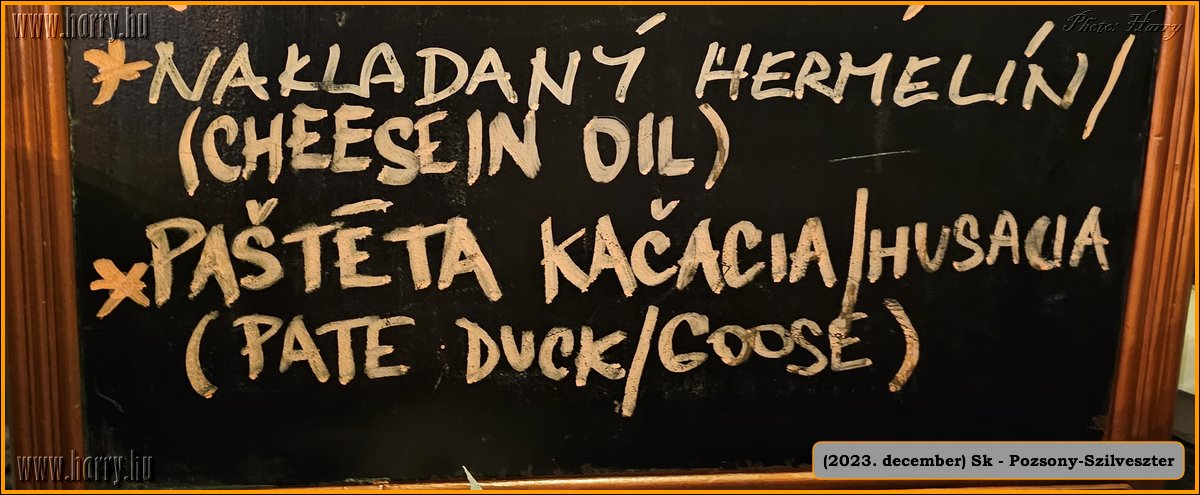 www.harry.hu
Photo: Harry
*NAKLADANÝ HERMELÍN/
(CHEESE IN OIL)
*PAŠTÉTA KAČACIA/HUSACIA
(PATE DUCK/GOOSE)
www.harry.hu
(2023. december) Sk - Pozsony-Szilveszter